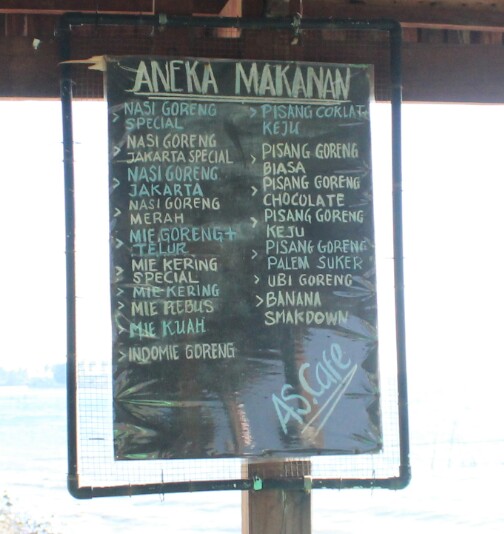 ANEKA MAKANAN
> NASI GORENG
SPECIAL
> NASI GORENG
JAKARTA SPECIAL
> NASI GORENG
JAKARTA
> NASI GORENG
MERAH
> MIE GORENG +
TELUR
> MIE KERING
SPECIAL
> MIE KERING
> MIE REBUS
> MIE KUAH
> INDOMIE GORENG
> PISANG COKLAT
KEJU
> PISANG GORENG
BIASA
> PISANG GORENG
CHOCOLATE
> PISANG GORENG
KEJU
> PISANG GORENG
PALEM SUKER
> UBI GORENG
> BANANA
SMAKDOWN
AS.Care